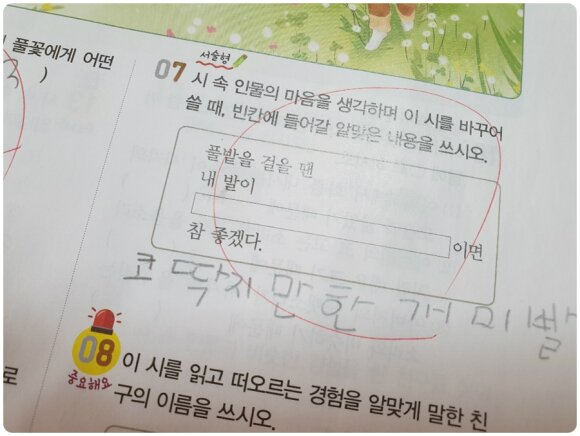 풀꽃에게 어떤
)
서술형
07 시 속 인물의 마음을 생각하며 이 시를 바꾸어
쓸 때, 빈칸에 들어갈 알맞은 내용을 쓰시오.
풀밭을 걸을 땐
내 발이
이면
참 좋겠다.
코딱지만한 개미발
08 이 시를 읽고 떠오르는 경험을 알맞게 말한 친
중요해요
구의 이름을 쓰시오.
로